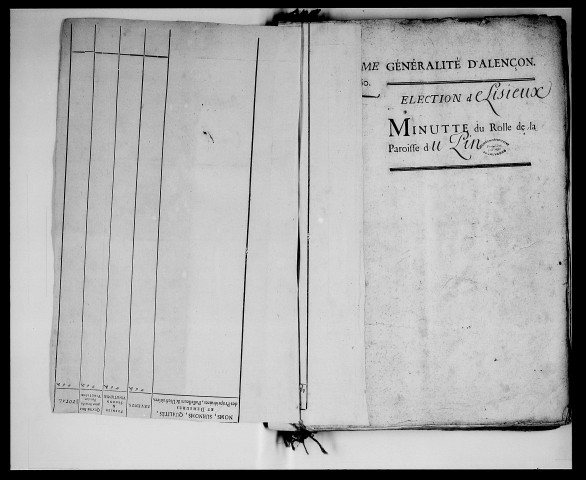 ME GÉNÉRALITÉ D'ALENÇON.
ELECTION de Lisieux
MINUTTE du Rolle de la
Paroisse du Pin
NOMS, SURNOMS, QUALITÉS,
ET DEMEURES
des Propriétaires, Possesseurs & Usufruitiers.
REVENUS.
TOTAL.